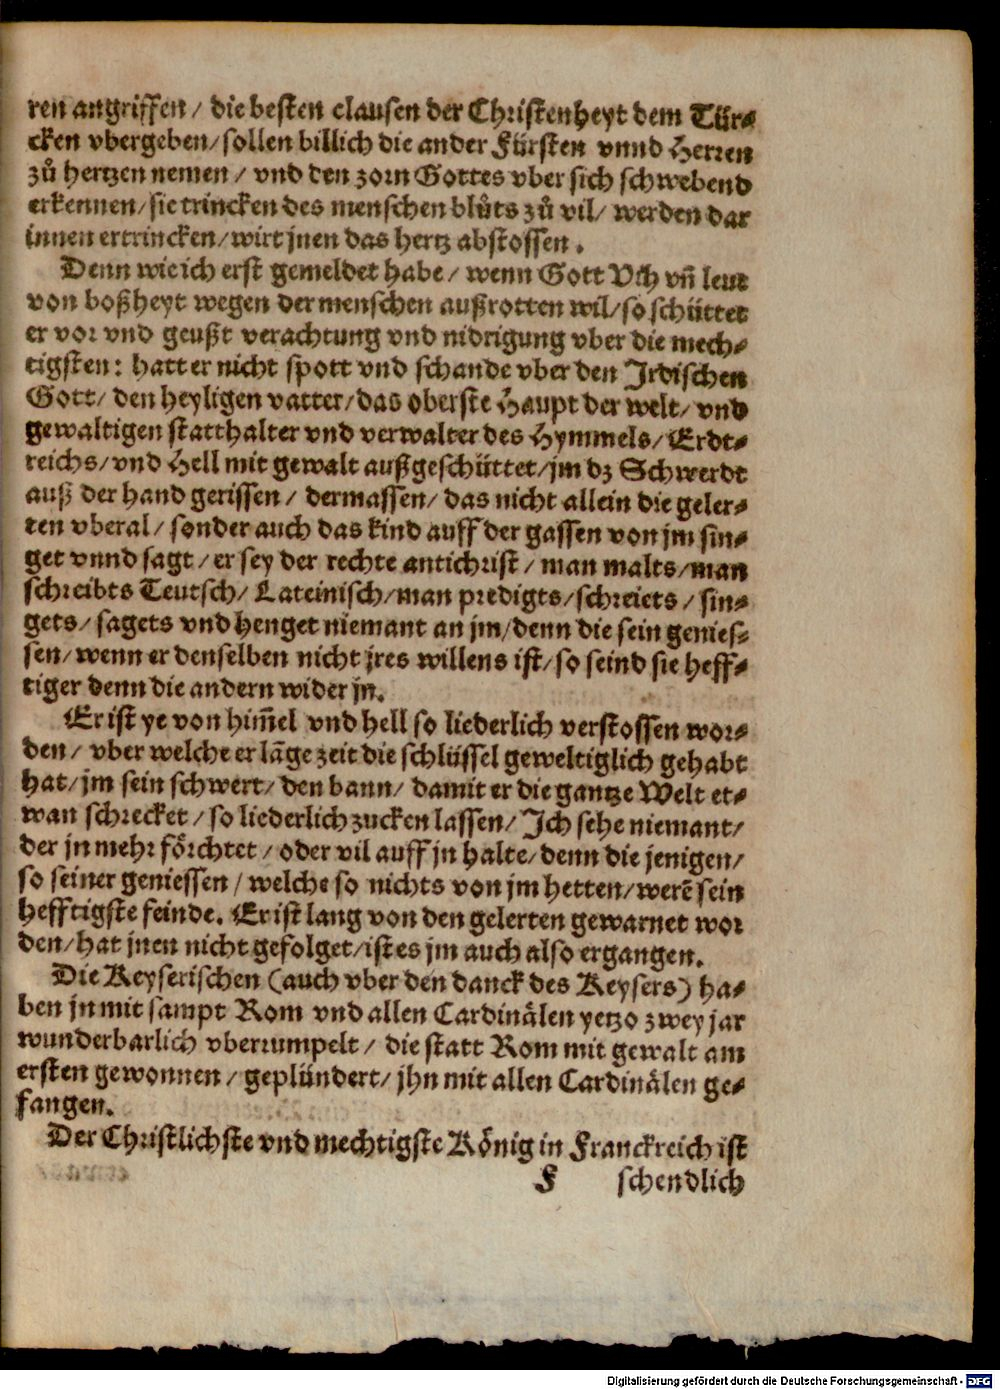 ren angriffen / die besten clausen der Christenheyt dem Tür⸗
cken vbergeben / sollen billich die ander Fürsten vnnd Herren
zů hertzen nemen / vnd den zorn Gottes vber sich schwebend
erkennen / sie trincken des menschen blůts zů vil / werden dar
innen ertrincken / wirt jnen das hertz abstossen.
Denn wie ich erst gemeldet habe / wenn Gott Vih vñ leut
von boßheyt wegen der menschen außrotten wil / so schüttet
er vor vnd geußt verachtung vnd nidrigung vber die mech⸗
tigsten: hatt er nicht spott vnd schande vber den Irdischen
Gott / den heyligen vatter / das oberste Haupt der welt / vnd
gewaltigen statthalter vnd verwalter des Hymmels / Erdt⸗
reichs / vnd Hell mit gewalt außgeschüttet / jm dz Schwerdt
auß der hand gerissen / dermassen / das nicht allein die geler⸗
ten vberal / sonder auch das kind auff der gassen von jm sin⸗
get vnnd sagt / er sey der rechte antichrist / man malts / man
schreibts Teutsch / Lateinisch / man predigts / schreiets / sin⸗
gets / sagets vnd henget niemant an jm / denn die sein genies⸗
sen / wenn er denselben nicht jres willens ist / so seind sie heff⸗
tiger denn die andern wider jn.
Er ist ye von him̃el vnd hell so liederlich verstossen wor⸗
den / vber welche er lãge zeit die schlüssel geweltiglich gehabt
hat / jm sein schwert / den bann / damit er die gantze Welt et⸗
wan schrecket / so liederlich zucken lassen / Ich sehe niemant /
der jn mehr förchtet / oder vil auff jn halte / denn die jenigen /
so seiner geniessen / welche so nichts von jm hetten / werẽ sein
hefftigste feinde. Er ist lang von den gelerten gewarnet wor
den / hat jnen nicht gefolget / ist es jm auch also ergangen.
Die Keyserischen (auch vber den danck des Keysers) ha⸗
ben jn mit sampt Rom vnd allen Cardinälen yetzo zwey jar
wunderbarlich vberrumpelt / die statt Rom mit gewalt am
ersten gewonnen / geplündert / jhn mit allen Cardinälen ge⸗
fangen.
Der Christlichste vnd mechtigste König in Franckreich ist
F schendlich
Digitalisierung gefördert durch die Deutsche Forschungsgemeinschaft - DFG